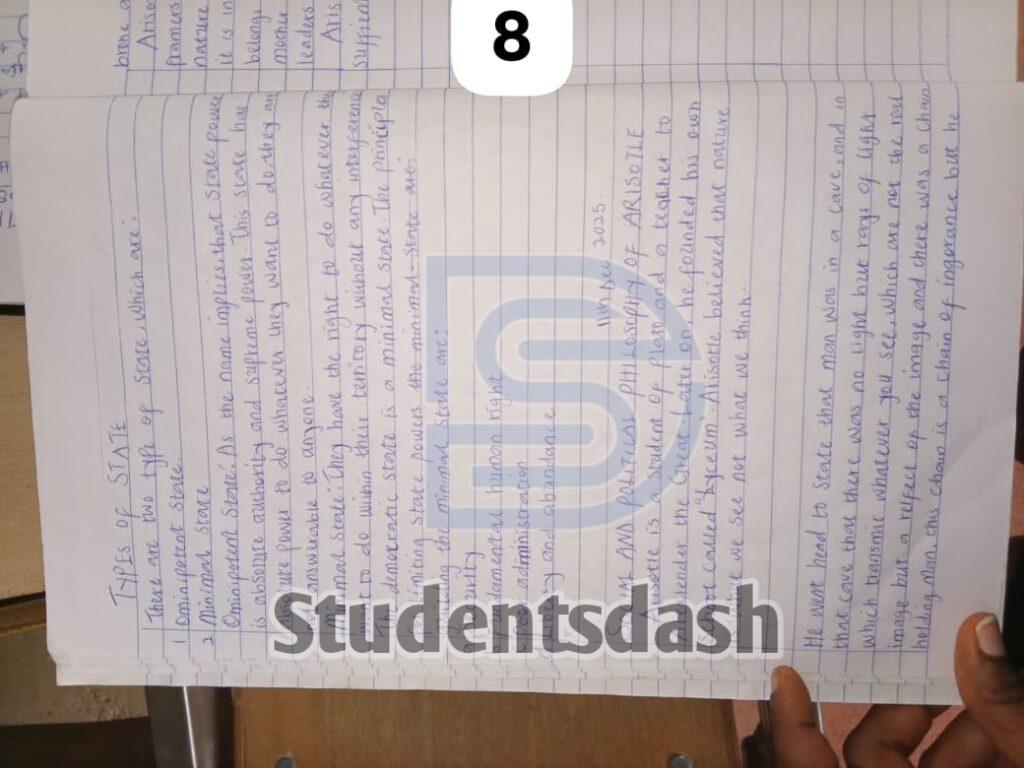 8
TYPES OF STATE
There are two type of state, which are:
1 Ominipotent state
2 Minimal state
Ominipotent State: As the name implies that state power
is absolute authority and supreme power. This state has
power to do whatever they want to do. they are
answerable to anyone.
Minimal state: They have the right to do whatever they
want to do within their territory without any
democratic state is a minimal state. The principles
limiting state powers the minimal state are:
the minimal state are:
Security
Fundamental human right
administration
and abundance
11/11/2025.
AND POLITICAL PHILOSOPHY OF ARISOTLE
Arisotle is a student of Plato and a teacher to
Alexander the Great. Later on he founded his own
called "Byceum". Arisotle believed that nature
we see not what we think.
He went head to state that man was in a cave, and in
that cave that there was no light but rays of light
which transmic whatever you see, which are not the real
image but a reflect of the image and there was a chain
holding Man, this chain is a chain of ingorance but he
brome a
Arisotle
framers
nature
it is in
belong
mother
leaders
Aris
sufficient
Studentsdash